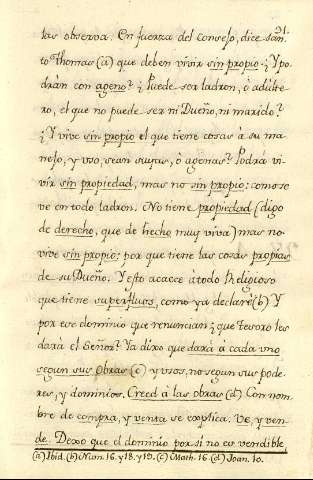 31.
las observa. En fuerza del consejo, dice San-
to Thomas (a) que deben vivir sin propio. ¿Y po-
drán con ageno? ¿Puede ser ladron, ò adúlte-
ro, el que no puede ser ni Dueño, ni marido?
¿Y vive sin propio el que tiene cosas á su ma-
nejo, y uso, sean suyas, ò agenas? Podrá vi-
vir sin propiedad, mas no sin propio: como se
ve en todo ladron. No tiene propiedad (digo
de derecho, que de hecho muy viva) mas no
vive sin propio; por que tiene las cosas propias
de su Dueño. Y esto acaece á todo Religioso
que tiene superfluos, como ya declaré (b) Y
por ese dominio que renuncian ¿que tesoro les
dará el Señor? Ya dixo que dará á cada uno
segun sus Obras (c) y usos, no segun sus pode-
res, y dominios. Creed á las obras (d) Con nom-
bre de compra, y venta se explica. Ve, y ven-
de. Dexo que el dominio por sí no es vendible,
(a) Ibid. (b) Num. 16. y 18. y 19. (c) Math. 16. (d) Joan. 10.